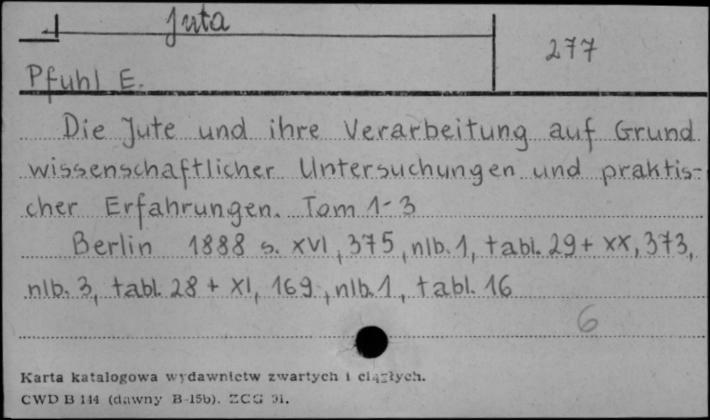 Juta
277
Pfuhl E.
Die Jute und ihre Verarbeitung auf Grund
wissenschaftlicher Untersuchungen und praktis-
cher Erfahrungen. Tom 1-3
Berlin 1888 s. XVI, 375, nlb. 1, tabl. 29 + XX, 373,
nlb. 3, tabl. 28 + XI, 169, nlb. 1, tabl. 16
6
Karta katalogowa wydawnictw zwartych i ciągłych.
CWD B 144 (dawny B-15b). ZCG 91.